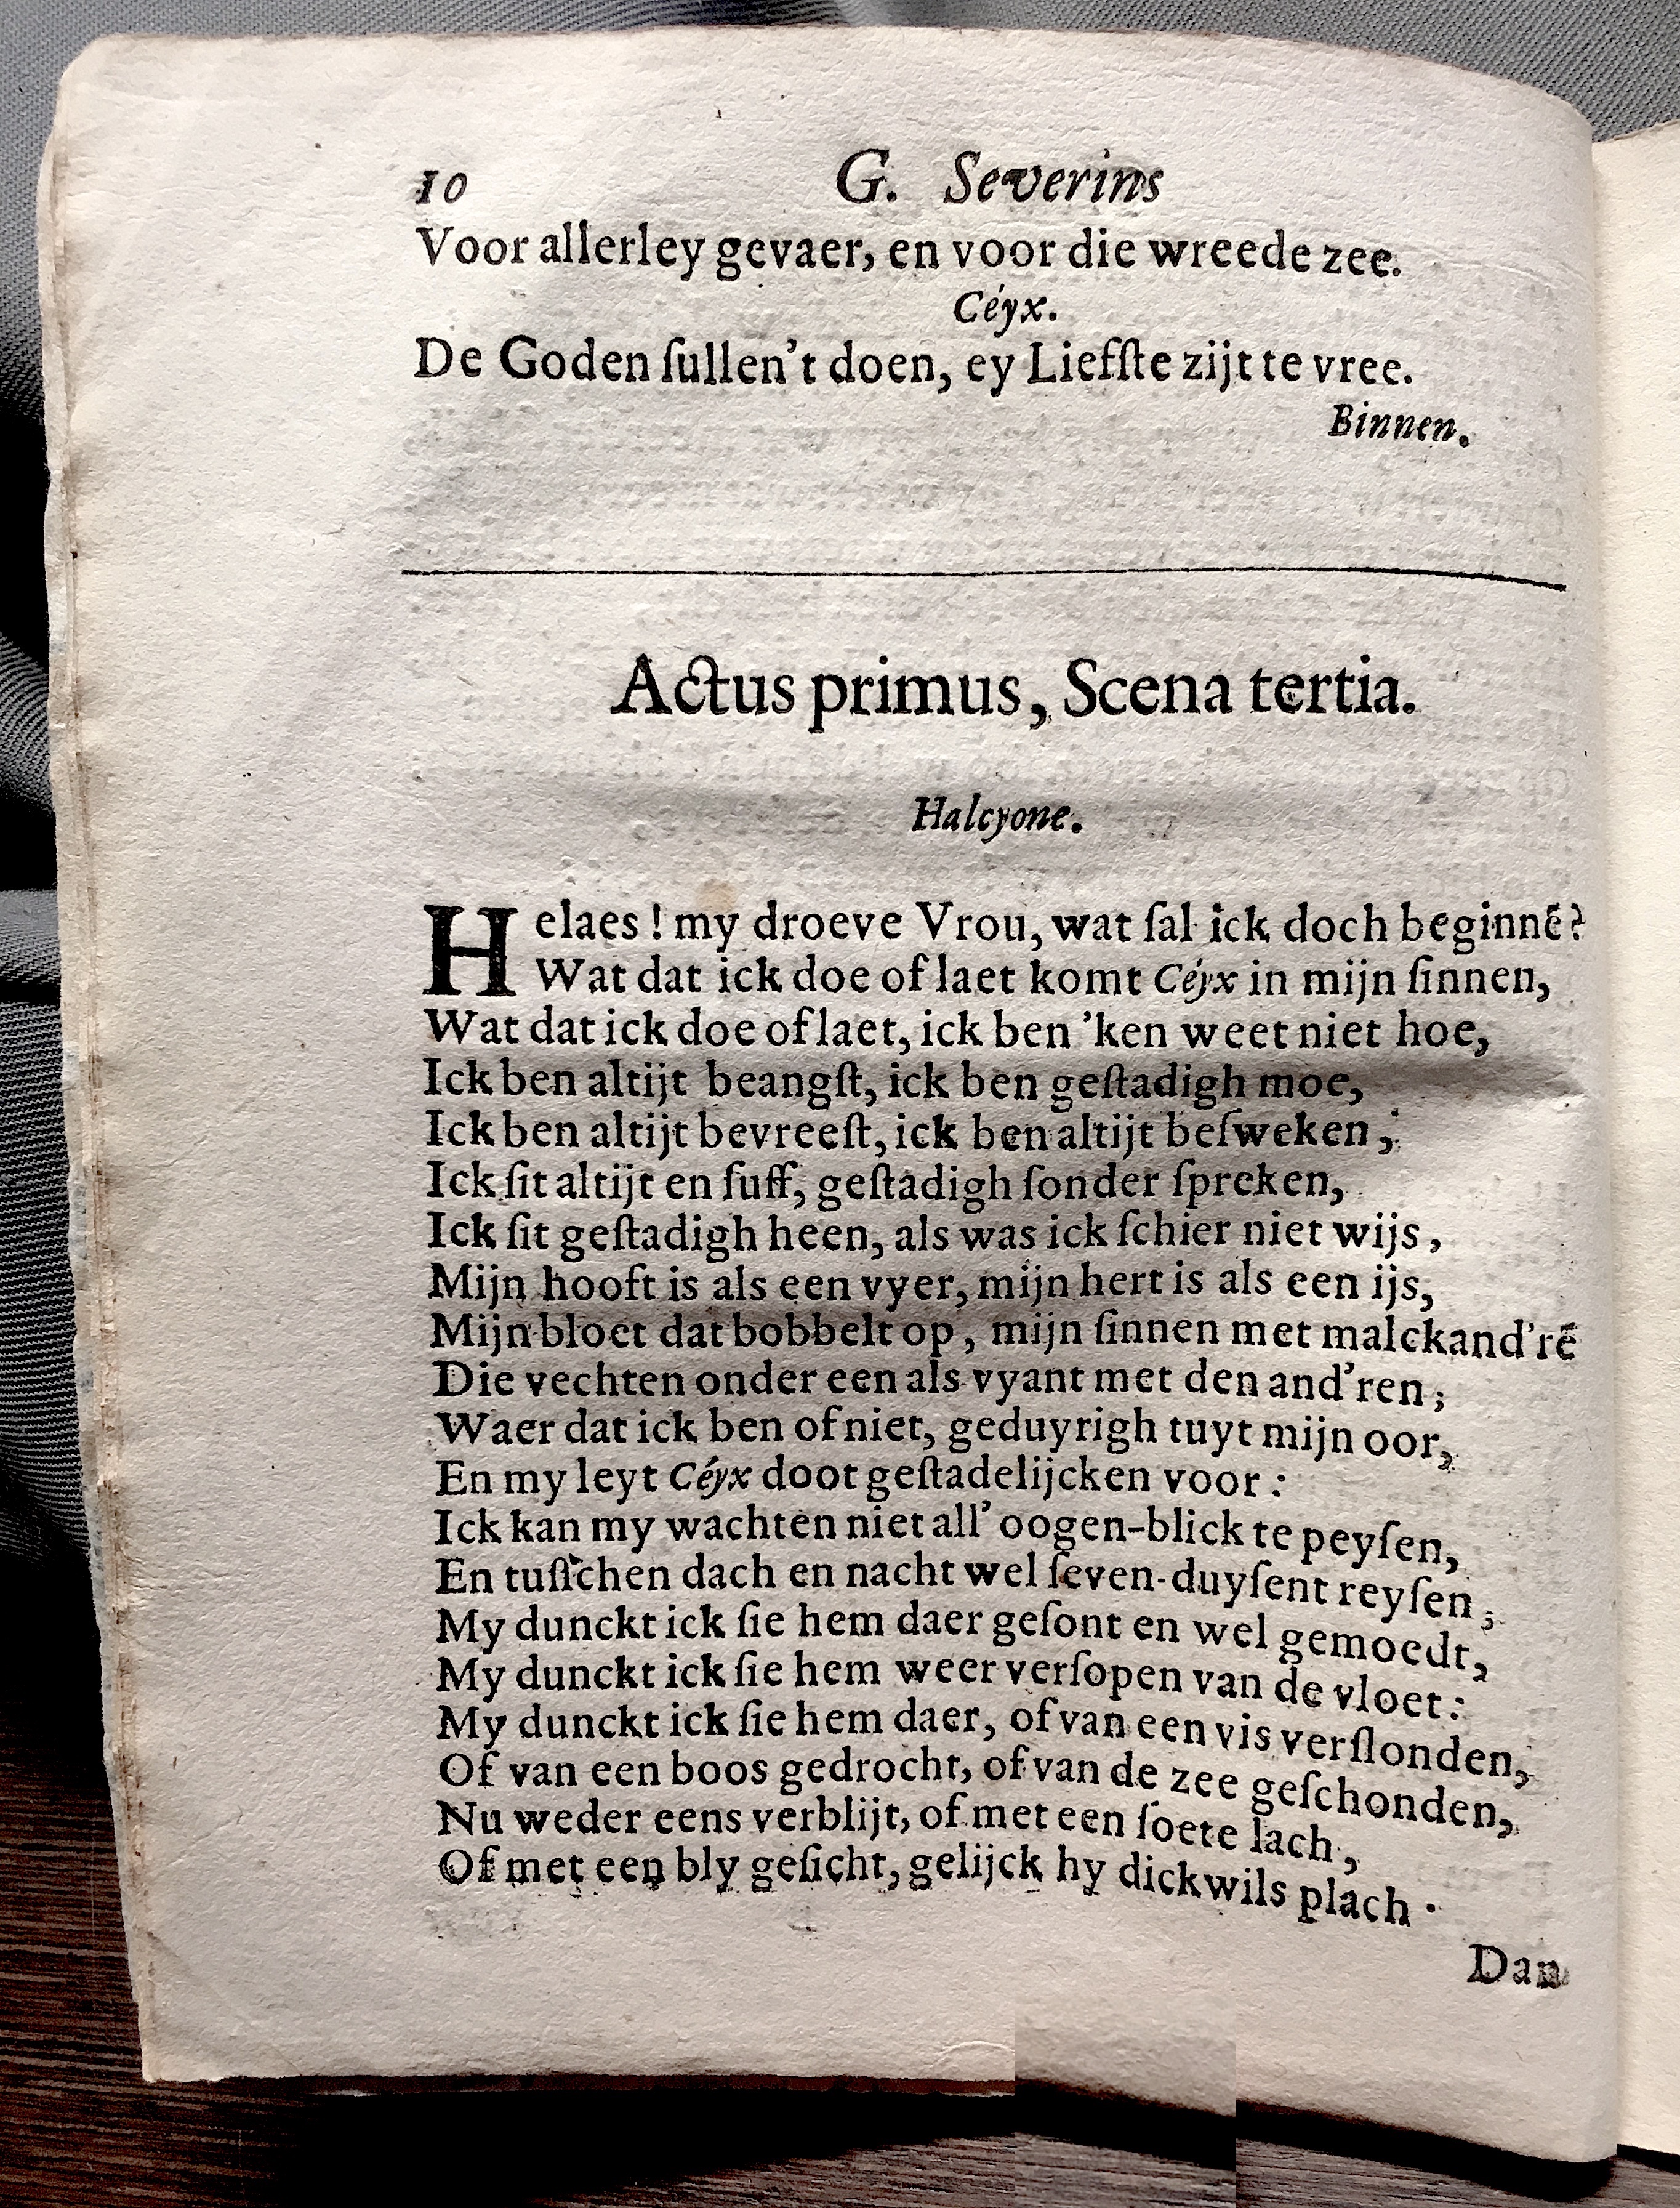 10 G. Severins
Voor allerley gevaer, en voor die wreede zee.
Céyx.
De Goden ſullen't doen, ey Liefſte zijt te vree.
Binnen.
Actus primus, Scena tertia.
Halcyone.
Helaes! my droeve Vrou, wat ſal ick doch beginnē?
Wat dat ick doe of laet komt Céyx in mijn ſinnen,
Wat dat ick doe of laet, ick ben 'ken weet niet hoe,
Ick ben altijt beangſt, ick ben geſtadigh moe,
Ick ben altijt bevreeſt, ick ben altijt beſweken,
Ick ſit altijt en ſuff, geſtadigh ſonder ſpreken,
Ick ſit geſtadigh heen, als was ick ſchier niet wijs,
Mijn hooft is als een vyer, mijn hert is als een ijs,
Mijn bloet dat bobbelt op, mijn ſinnen met malckand'rē
Die vechten onder een als vyant met den and'ren;
Waer dat ick ben of niet, geduyrigh tuyt mijn oor,
En my leyt Céyx doot geſtadelijcken voor:
Ick kan my wachten niet all' oogen-blick te peyſen,
En tuſſchen dach en nacht wel ſeven-duyſent reyſen;
My dunckt ick ſie hem daer geſont en wel gemoedt,
My dunckt ick ſie hem weer verſopen van de vloet:
My dunckt ick ſie hem daer, of van een vis verſlonden,
Of van een boos gedrocht, of van de zee geſchonden,
Nu weder eens verblijt, of met een ſoete lach,
Of met een bly geſicht, gelijck hy dickwils plach.
Dan